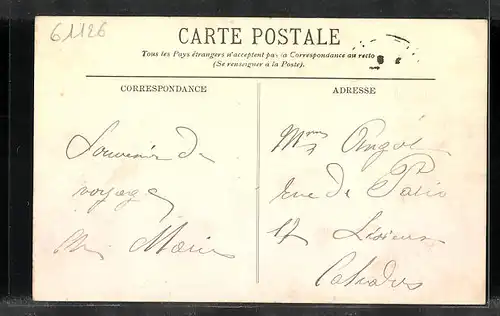 61126
CARTE POSTALE
Tous les Pays étrangers n'acceptent pas la Correspondance au recto
(Se renseigner à la Poste).
CORRESPONDANCE
Souvenir de
voyage
Marie
ADRESSE
Mme Angot
rue de Paris
Lisieux
Calvados